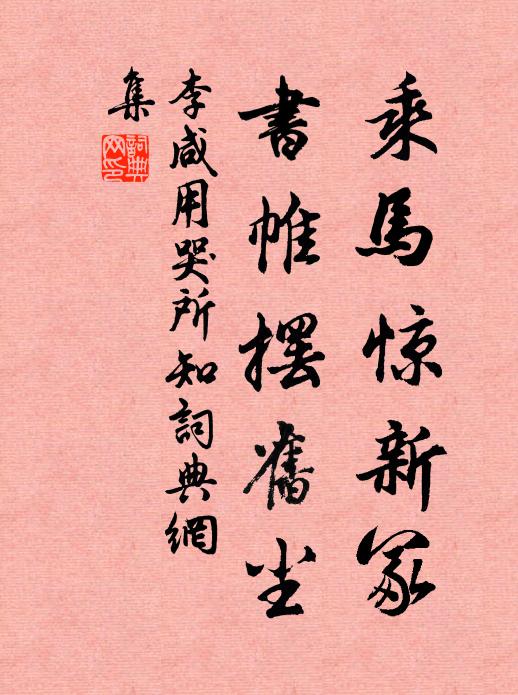 乘馬惊新冢
書帷擺舊尘
李咸用哭所知詞典網
集
詞典网印